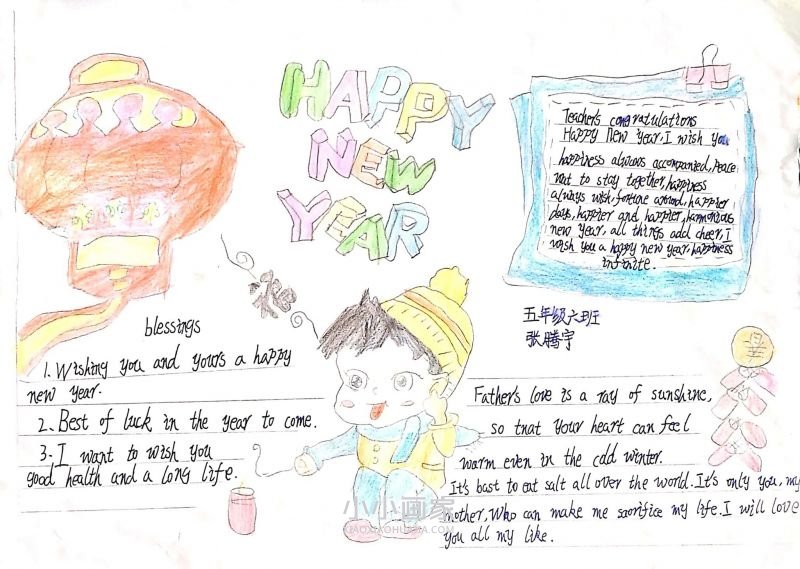 HAPPY
NEW
YEAR
Teachers congratulations
Happy New Year. I wish you
happiness always accompanied, Peace
not to stay together, happiness
always wish, fortune around, happier
days, happier and happier, harmonious
new year, all things add cheer, I
wish you a happy new year, happiness
infinite.
福
五年级六班
张腾宇
blessings
1. Wishing you and yours a happy
new year.
2. Best of luck in the year to come.
3. I want to wish you
good health and a long life.
Father's love is a ray of sunshine,
so tnat your heart can feel
warm even in the cold winter.
It's bast to eat salt all over the world. It's only you, my
mother, who can make me sacrifice my life. I will love
you all my like.
小小画家
XIAOXIAOHUAJIA.COM